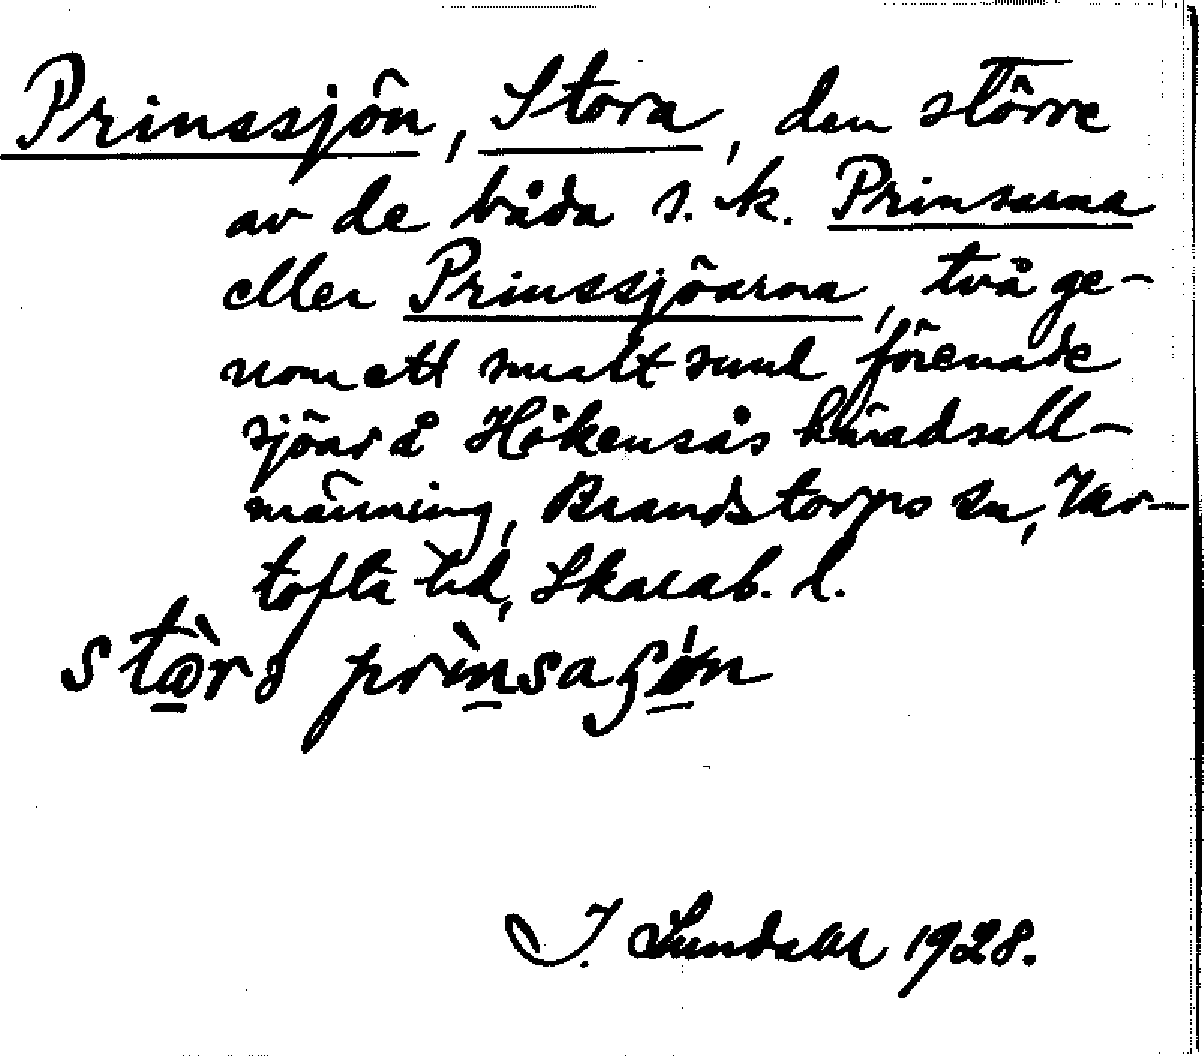 Prinssjön, Stora, den större
av de båda s.k. Prinsarna
eller Prinssjöarna, två ge-
nom ett smalt sund förenade
sjöar å Hökensås häradsall-
männing, Brandstorps sn, Var-
tofta hd, Skarab. l.
I. Lundahl 1928.